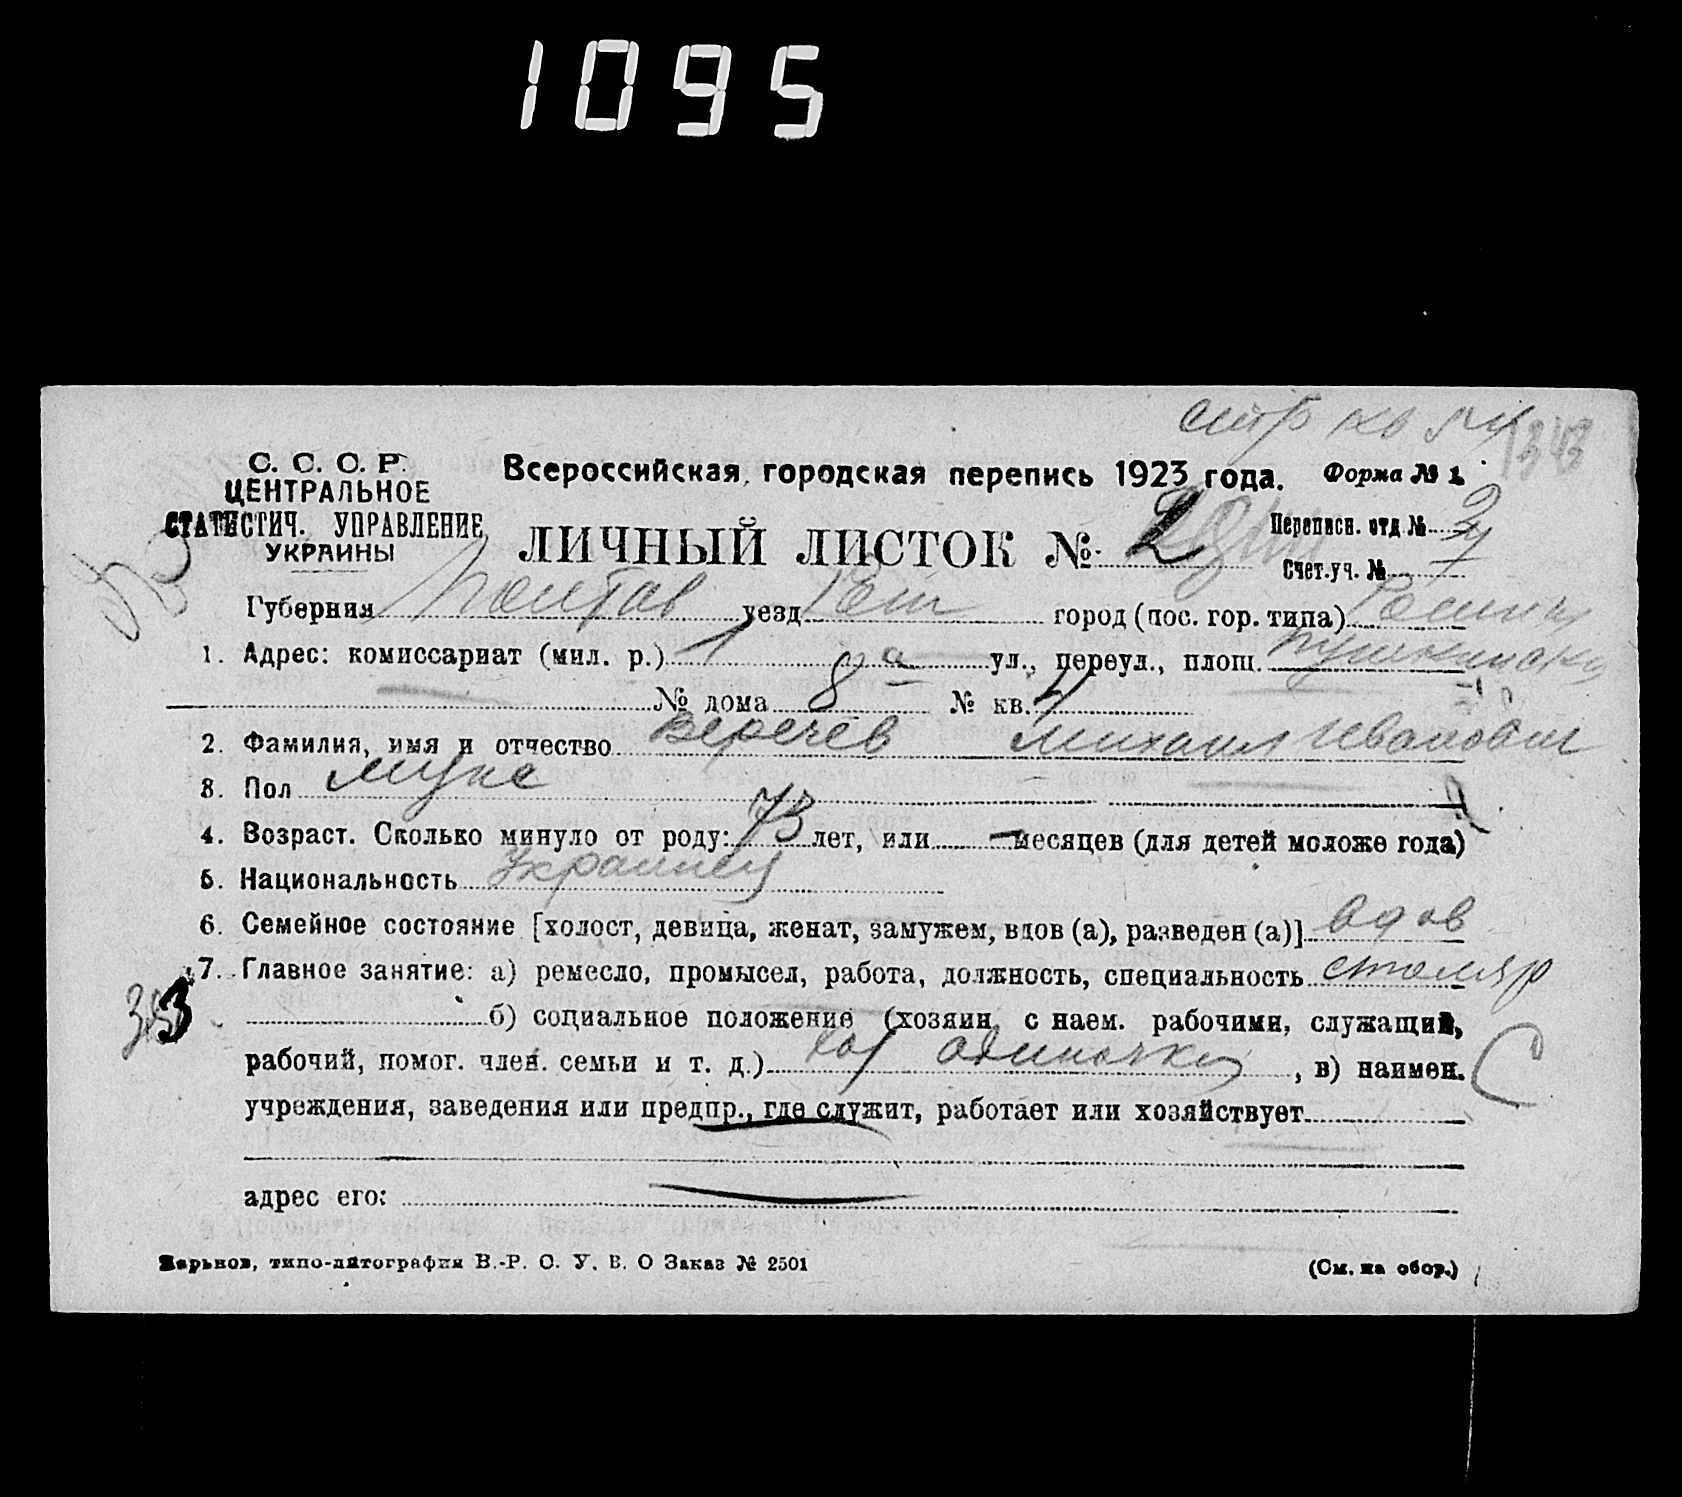 1095
стр кв №4 1343
С. С. С. Р.
ЦЕНТРАЛЬНОЕ
СТАТИСТИЧ. УПРАВЛЕНИЕ
УКРАИНЫ
Всероссийская городская перепись 1923 года. Форма № 1.
ЛИЧНЫЙ ЛИСТОК № 2
Переписн. отд № 2
Счет.уч. № 4
Губерния Полтав уезд Ром город (пос. гор. типа) Ромны
1. Адрес: комиссариат (мил. р.) 1 2 а ул., переул., площ. Пушкинска
№ дома 8 № кв. 4
2. Фамилия, имя и отчество Веречев Михаил Иванович
3. Пол мужс
4. Возраст. Сколько минуло от роду: 73 лет, или — месяцев (для детей моложе года)
5. Национальность Украинец
6. Семейное состояние [холост, девица, женат, замужем, вдов (а), разведен (а)] вдов
7. Главное занятие: а) ремесло, промысел, работа, должность, специальность столяр
33
б) социальное положение (хозяин с наем. рабочими, служащий,
рабочий, помог. член. семьи и т. д.) хоз одиночка, в) наимен.
учреждения, заведения или предпр., где служит, работает или хозяйствует
адрес его:
Харьков, типо-литография В.-Р. С. У. В. О Заказ № 2501
(См. на обор.)